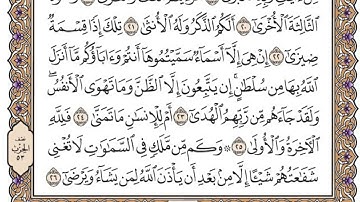 ٱلثَّالِثَةَ ٱلْأُخْرَىٰٓ ٢٠ أَلَكُمُ ٱلذَّكَرُ وَلَهُ ٱلْأُنثَىٰ ٢١ تِلْكَ إِذًا قِسْمَةٌ
ضِيزَىٰٓ ٢٢ إِنْ هِىَ إِلَّآ أَسْمَآءٌ سَمَّيْتُمُوهَآ أَنتُمْ وَءَابَآؤُكُم مَّآ أَنزَلَ
ٱللَّهُ بِهَا مِن سُلْطَٰنٍ ۚ إِن يَتَّبِعُونَ إِلَّا ٱلظَّنَّ وَمَا تَهْوَى ٱلْأَنفُسُ ۖ
وَلَقَدْ جَآءَهُم مِّن رَّبِّهِمُ ٱلْهُدَىٰٓ ٢٣ أَمْ لِلْإِنسَٰنِ مَا تَمَنَّىٰ ٢٤ فَلِلَّهِ
ٱلْأٓخِرَةُ وَٱلْأُولَىٰ ٢٥ ۞ وَكَم مِّن مَّلَكٍ فِى ٱلسَّمَٰوَٰتِ لَا تُغْنِى
شَفَٰعَتُهُمْ شَيْـًٔا إِلَّا مِنۢ بَعْدِ أَن يَأْذَنَ ٱللَّهُ لِمَن يَشَآءُ وَيَرْضَىٰٓ ٢٦
نصف
الحزب
٥٣